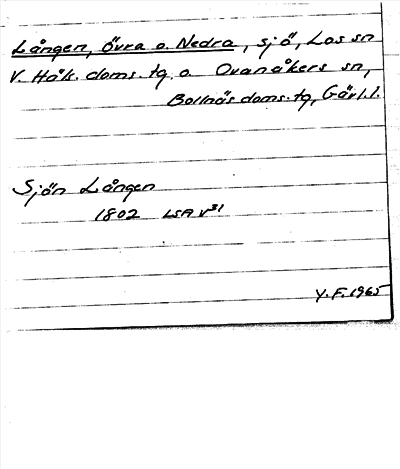 Lången, övra o. Nedra, sjö, Los sn
V. Häls. doms. tg o. Ovanåkers sn,
Bollnäs doms. tg, Gävl.l.
Sjön Lången
1802 LSA V31
Y.F. 1965